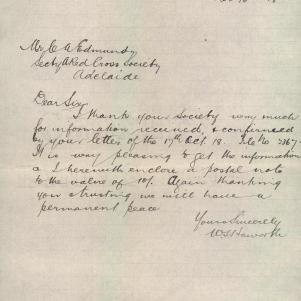 Mr C A Edmunds
Secty A Red Cross Society
Adelaide
Dear Sir,
I thank your Society very much
for information received, & confirmed
by your letter of the 17th Oct 18. File No 2367
It is very pleasing to get the information
& I herewith enclose a postal note
to the value of 10/. Again thanking
you & trusting we will have a
permanent peace
Yours Sincerely
W Haworth